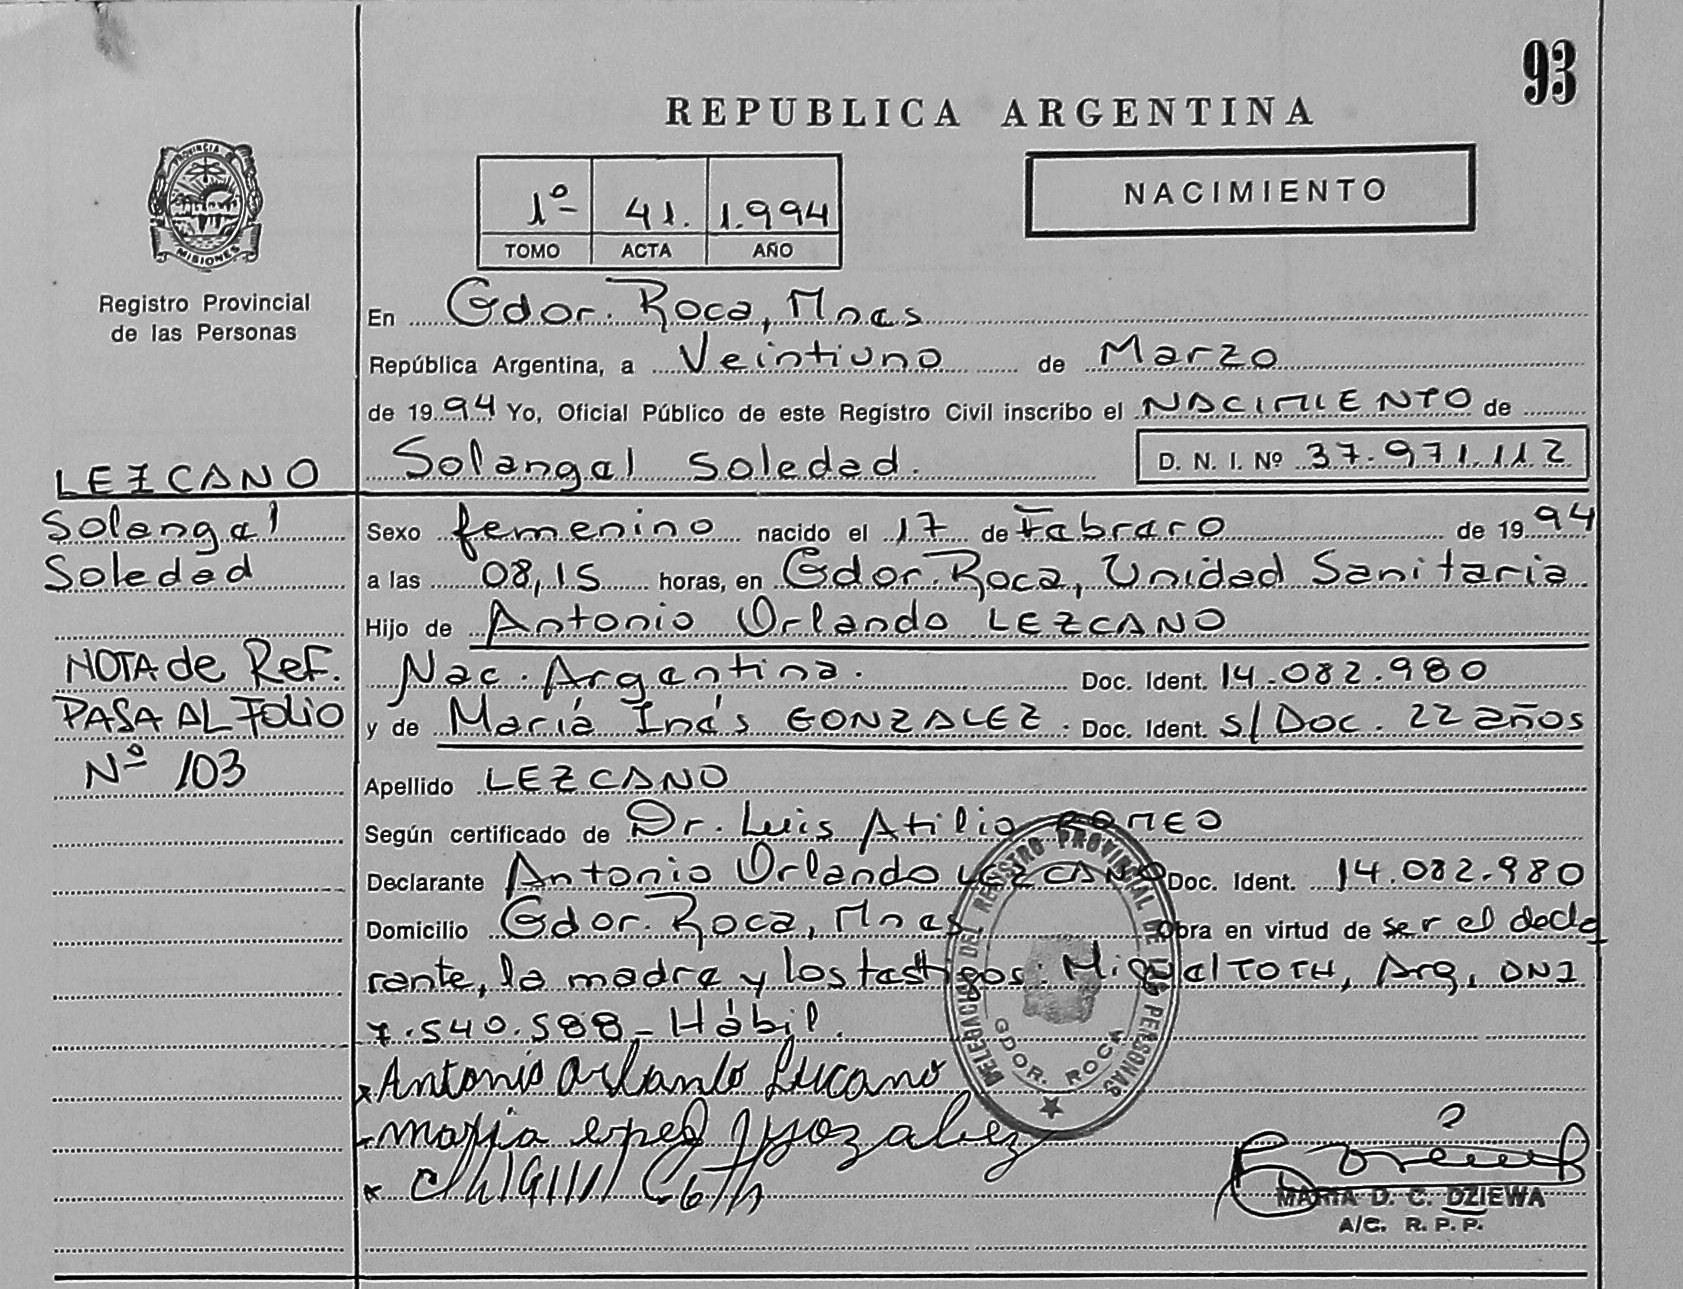 93
REPUBLICA ARGENTINA
PROVINCIA DE
MISIONES
Registro Provincial
de las Personas
1º 41. 1.994
TOMO ACTA AÑO
NACIMIENTO
En Gdor. Roca, Mnes
República Argentina, a Veintiuno de Marzo
de 1994 Yo, Oficial Público de este Registro Civil inscribo el NACIMIENTO de
Solangel Soledad. D. N. I. Nº 37.971.112
LEZCANO
Solangel
Soledad
NOTA de Ref.
PASA AL Folio
Nº 103
Sexo femenino nacido el 17 de Febrero de 1994
a las 08,15 horas, en Gdor. Roca, Unidad Sanitaria
Hijo de Antonio Orlando LEZCANO
Nac. Argentina. Doc. Ident. 14.082.980
y de María Inés GONZALEZ. Doc. Ident. s/Doc. 22 años
Apellido LEZCANO
Según certificado de Dr. Luis Atilio ROMEO
Declarante Antonio Orlando LEZCANO Doc. Ident. 14.082.980
Domicilio Gdor. Roca, Mnes Obra en virtud de ser el decla
rante, la madre y los testigos: Miguel TOTH, Arg, DNI
7.540.588 - Hábil.
DELEGACION DEL REGISTRO PROVINCIAL DE LAS PERSONAS
GDOR. ROCA
x Antonio Orlando Lezcano
MARIA D. C. DZIEWA
A/C. R. P. P.